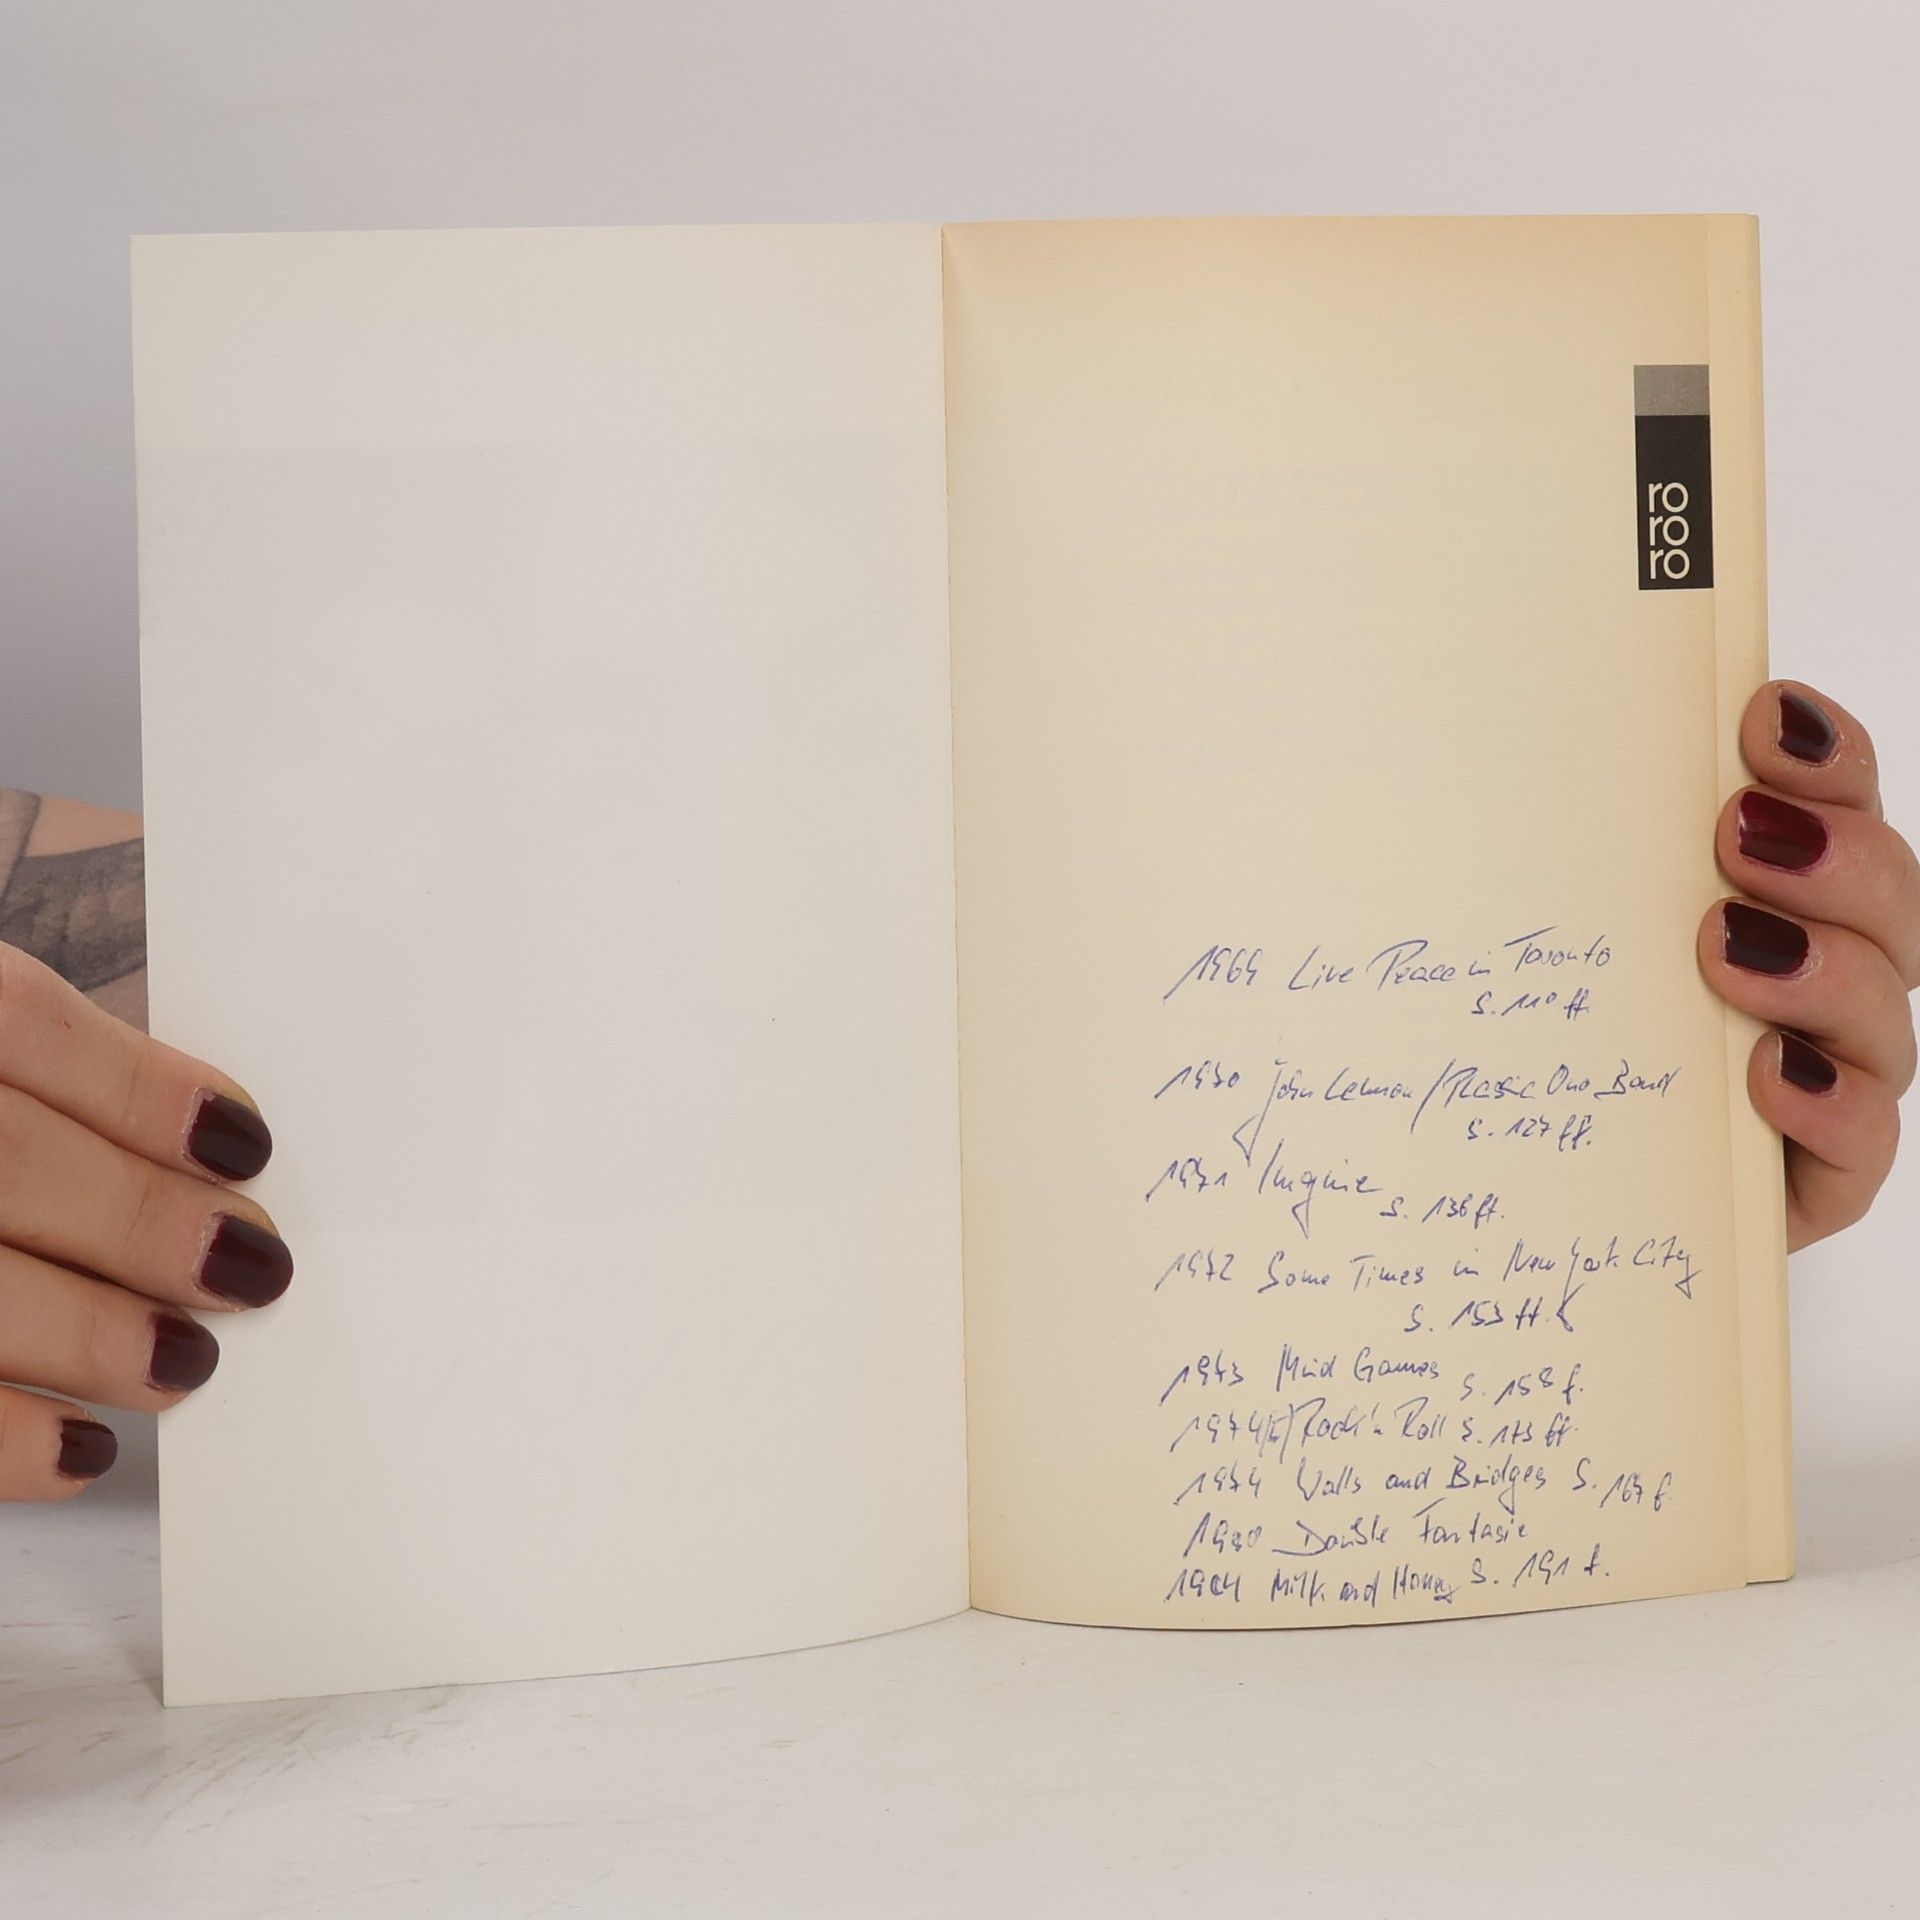 ro
ro
ro
1969 Live Peace in Toronto
S. 110 ff.
1970 John Lennon / Plastic Ono Band
S. 127 ff.
1971 Imagine
S. 136 ff.
1972 Some Times in New York City
S. 153 ff.
1973 Mind Games
S. 158 f.
1974(5) Rock'n Roll S. 173 ff.
1974 Walls and Bridges S. 167 f.
1980 Double Fantasie
1984 Milk and Honey S. 191 f.